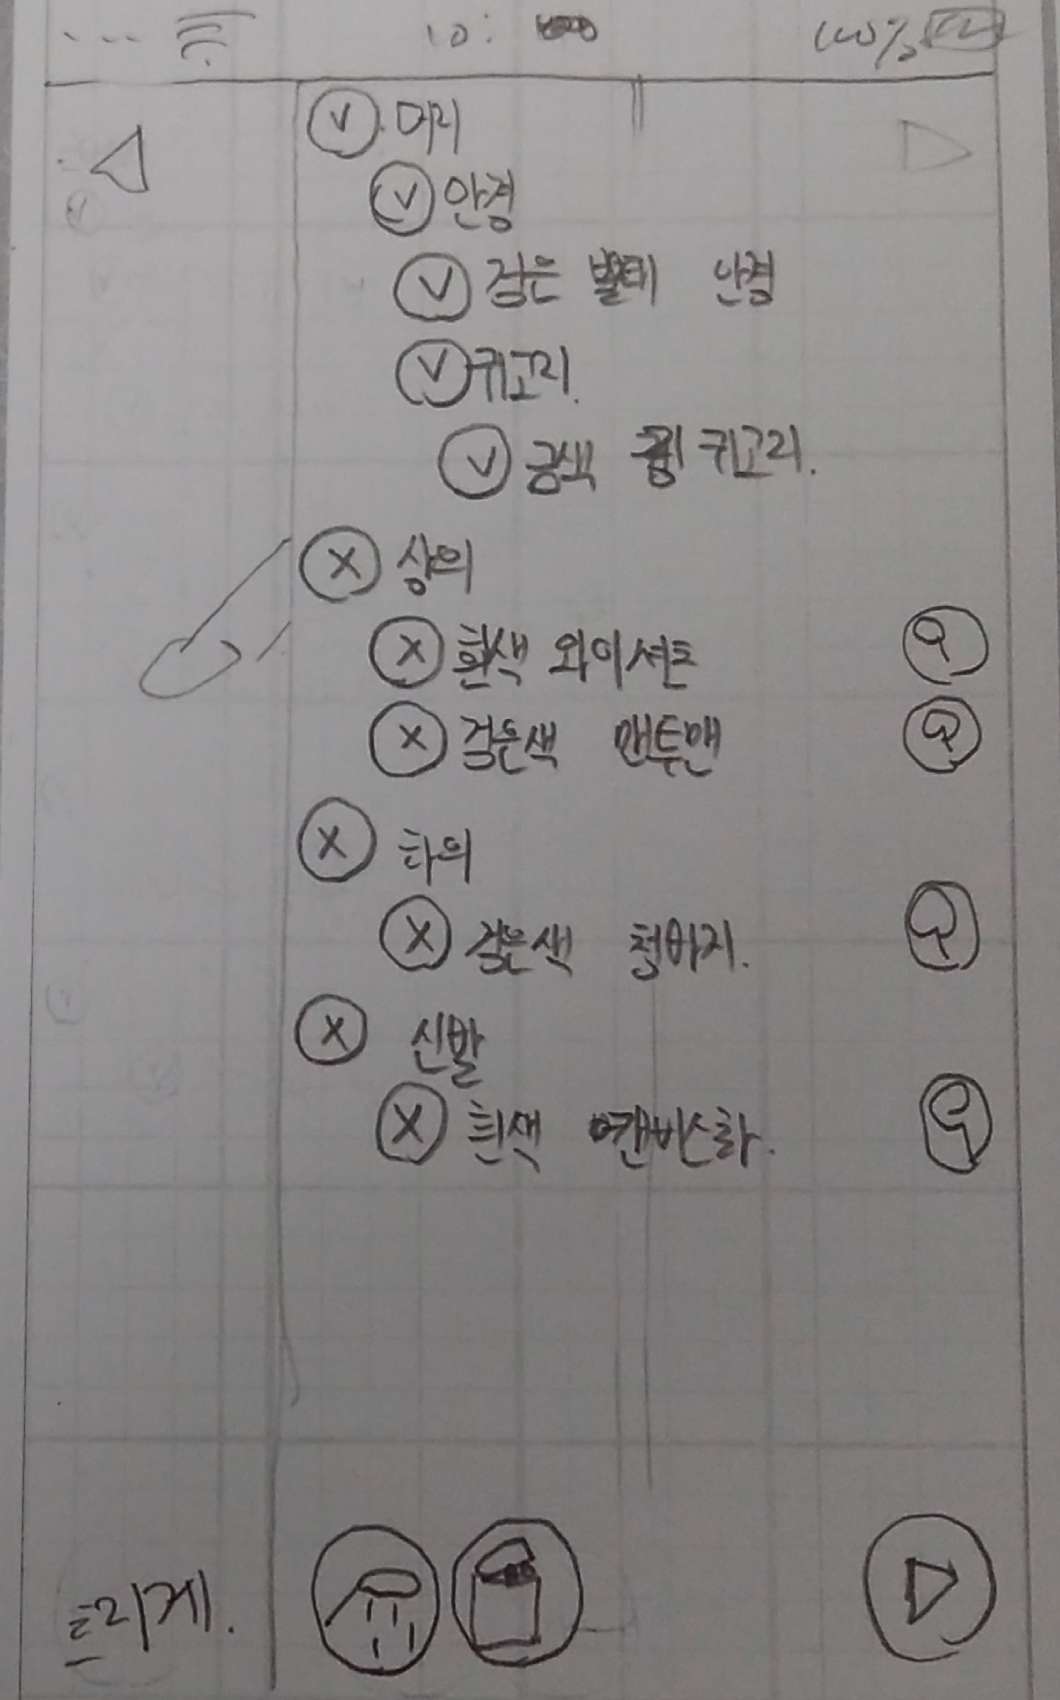 10:
100%
V 머리
V 안경
V 검은 뿔테 안경
V 귀고리.
V 금색 링 귀고리.
X 상의
X 흰색 와이셔츠
X 검은색 맨투맨
X 하의
X 검은색 청바지.
X 신발
X 흰색 캔버스화.
흐리게.